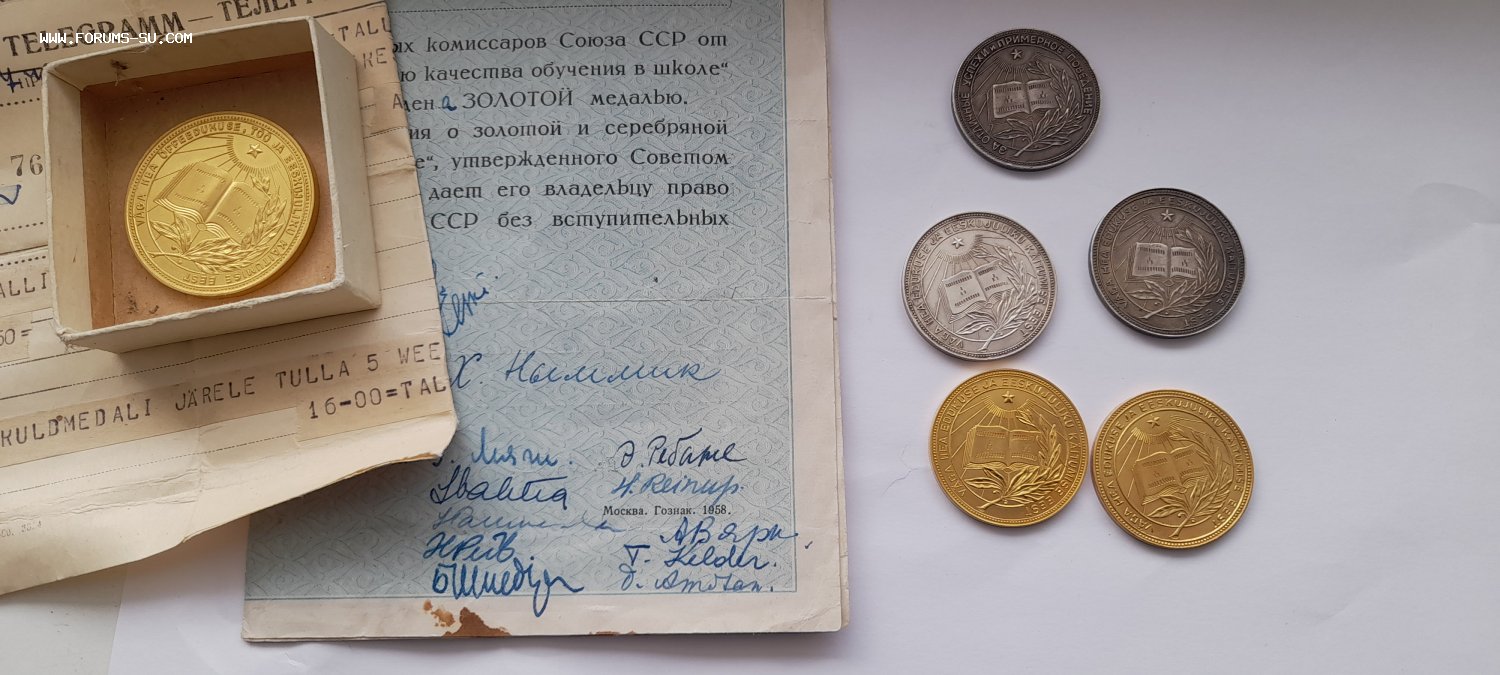 WWW.FORUMS-SU.COM
TELEGRAMM—ТЕЛЕГР
TALL
76
ALLI
50=
KULDMEDALI JÄRELE TULLA 5 WEE
16-00=TAL
VÄGA HEA ÕPPEEDUKUSE, TÖÖ JA EESKUJULIKU KÄITUMISE EEST
ых комиссаров Союза ССР от
ю качества обучения в школе“
ден а ЗОЛОТОЙ медалью.
ия о золотой и серебряной
е“, утвержденного Советом
дает его владельцу право
ССР без вступительных
Х. Ныммик
Э. Ребане
H. Reinup.
Москва. Гознак. 1958.
T. Kelder.
ЗА ОТЛИЧНЫЕ УСПЕХИ И ПРИМЕРНОЕ ПОВЕДЕНИЕ
VÄGA HEA EDUKUSE JA EESKUJULIKU KÄITUMISE EEST
VÄGA HEA EDUKUSE JA EESKUJULIKU KÄITUMISE EEST
VÄGA HEA EDUKUSE JA EESKUJULIKU KÄITUMISE EEST
VÄGA HEA EDUKUSE JA EESKUJULIKU KÄITUMISE EEST